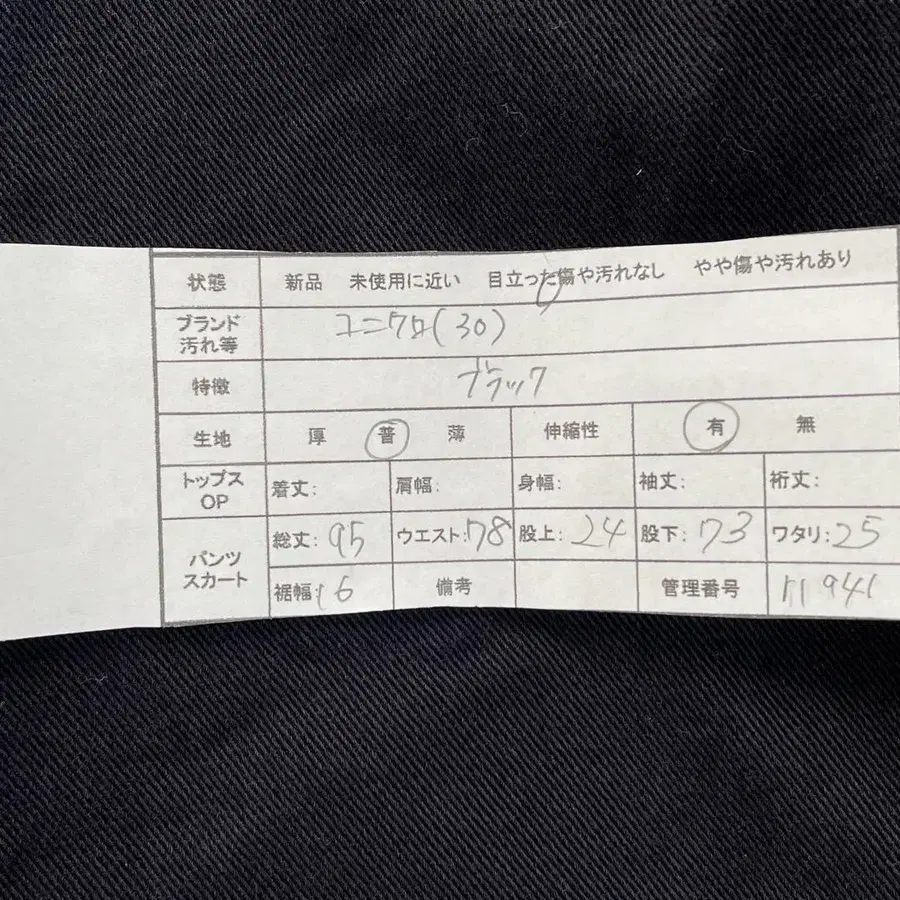 状態 新品 未使用に近い 目立った傷や汚れなし やや傷や汚れあり
ブランド
汚れ等
ユニクロ(30)
特徴 ブラック
生地 厚 普 薄 伸縮性 有 無
トップス
OP
着丈: 肩幅: 身幅: 袖丈: 裄丈:
パンツ
スカート
総丈: 95 ウエスト: 78 股上: 24 股下: 73 ワタリ: 25
裾幅: 16 備考 管理番号 11941